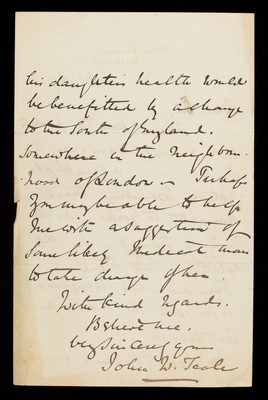 his daughter's health would
be benefitted by a change
to the South of England.
Somewhere in the neighbour-
-hood of London - Perhaps
you may be able to help
me with a suggestion of
some likely Medical man
to take charge of her.
With kind regards.
Believe me.
very sincerely yours
John W. Teale